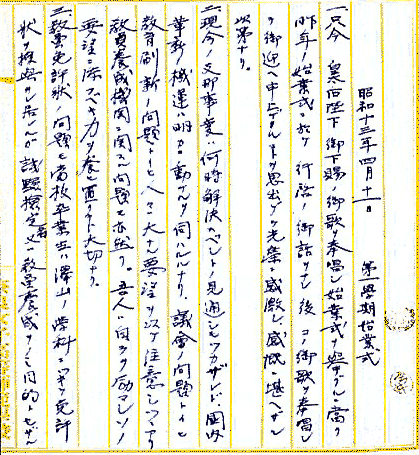 昭和十三年四月十一日　第一學期始業式
一、只今　皇后陛下御下賜ノ御歌ヲ奉唱シ始業式ヲ擧グルニ當リ
昨年ノ始業式ニ於テ行啓ノ御話ヲシ後コノ御歌ヲ奉唱シ
テ御迎ヘ申上ゲタルヲ思出シ光榮ニ感激シ感慨ニ堪ヘザル
次第ナリ。
二、現今ノ支那事變ハ何時解決スベシノ見通シモツカザレド、國内
革新ノ機運ハ明カニ動キアルヲ伺ハルナリ、議會ノ問題トイヒ
教育刷新ノ問題トイヒ、大ナル要望ヲ以テ注意シツツアリ
教員養成機関ニ関スル問題モ亦然リ。吾人ハ自ラヲ励マシソノ
要望ニ添フベキ力ヲ養ヒ置クコト大切ナリ。
三、教員免許状ノ問題モ當校卒業生ハ澤山ノ學科ニツキ免許
状ヲ授與サレ居ルガ試驗檢定又ハ教員養成ヲノミ目的トセザル